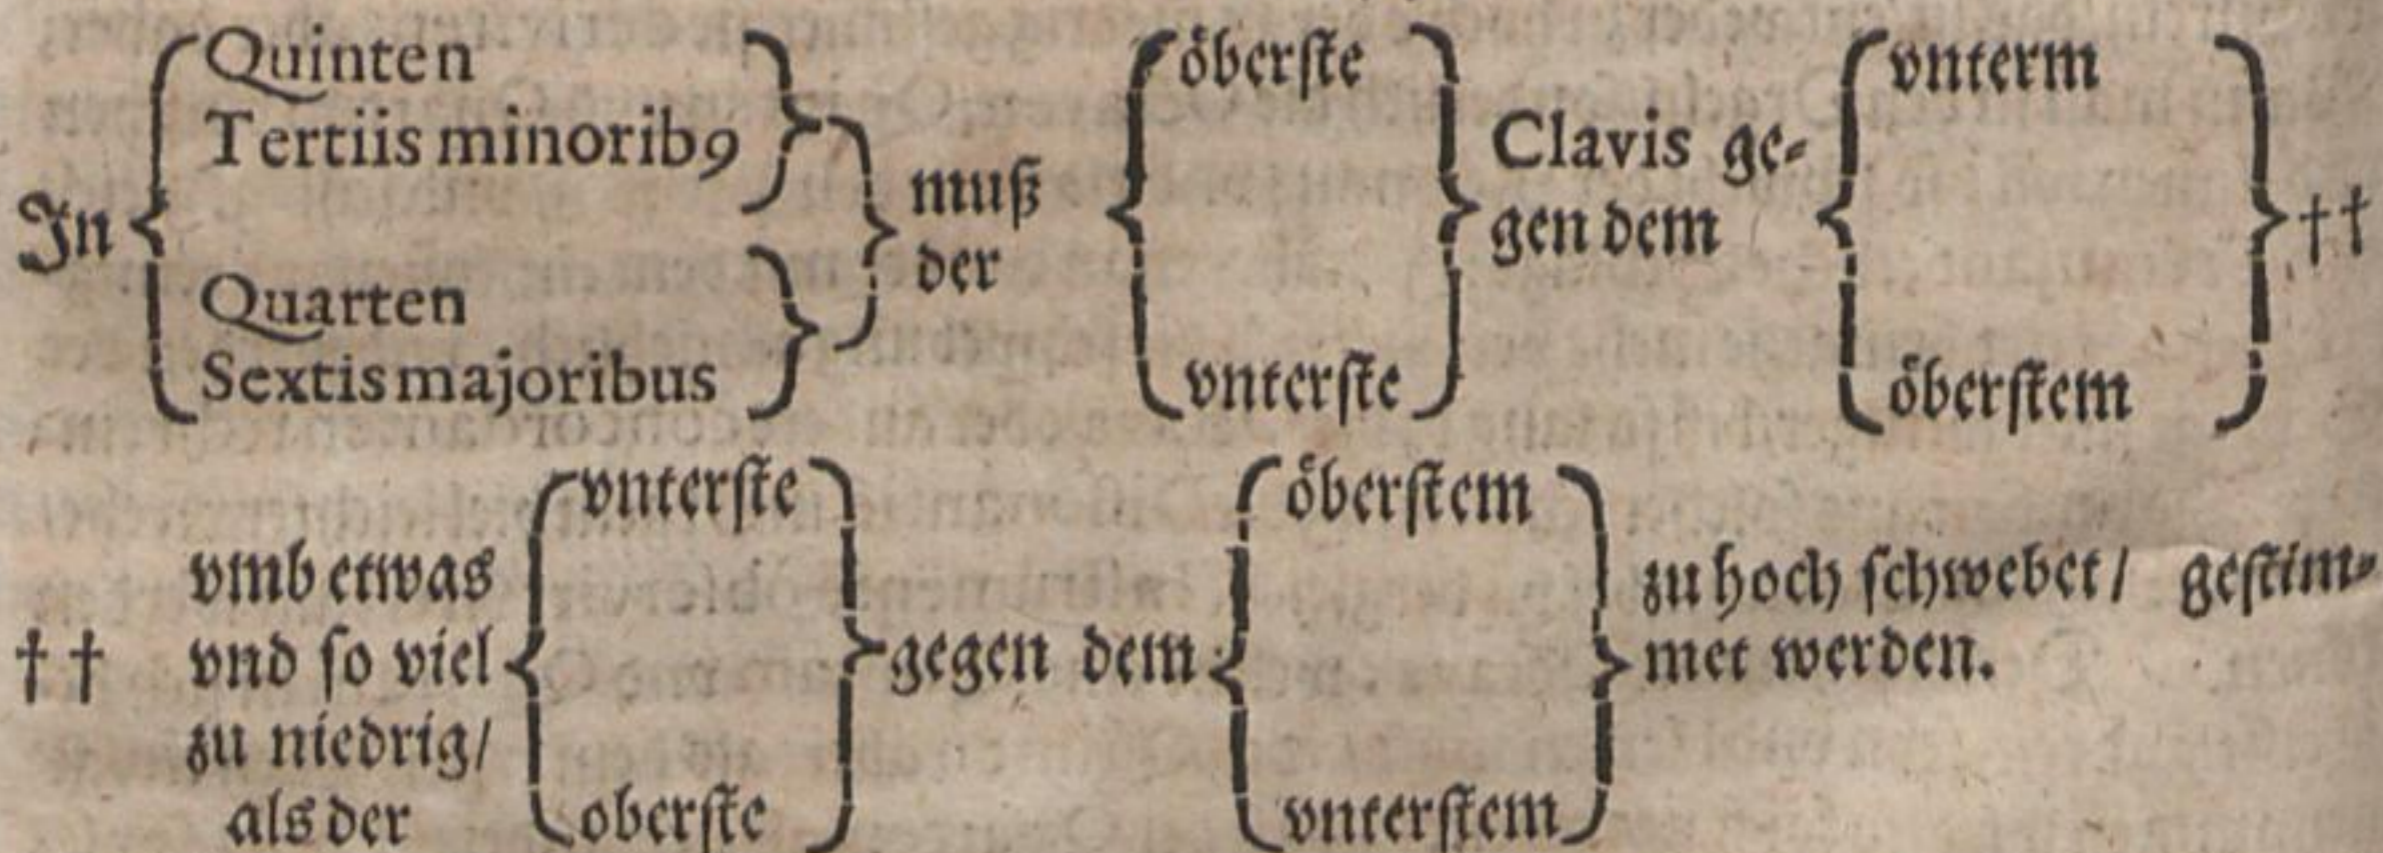 In
Quinten
Tertiis minoribꝰ
Quarten
Sextis majoribus
muß
der
oͤberſte
vnterſte
Clavis ge-
gen dem
vnterm
oͤberſtem
††
††
vmb etwas
vnd ſo viel
zu niedrig/
als der
vnterſte
oberſte
gegen dem
oͤberſtem
vnterſtem
zu hoch ſchwebet/ geſtim-
met werden.